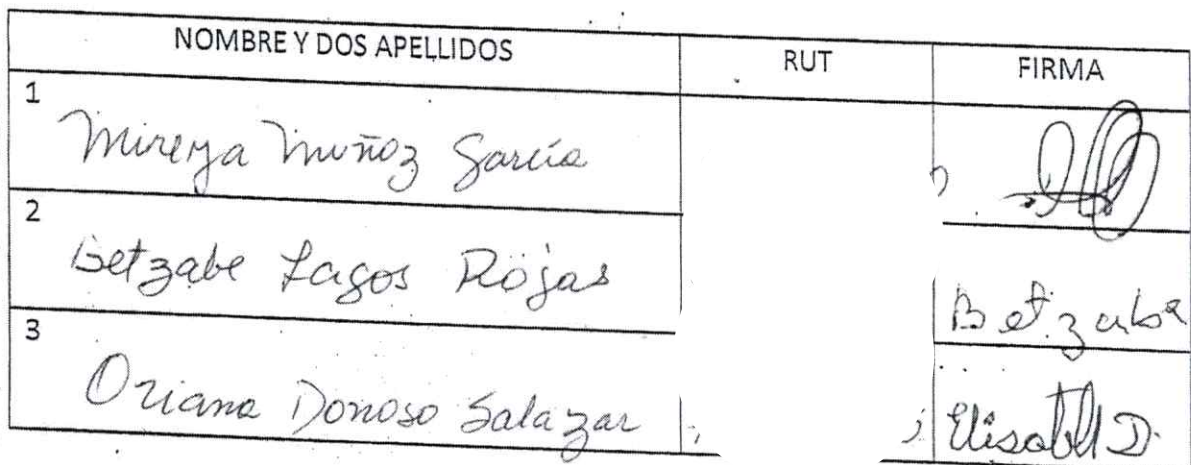 NOMBRE Y DOS APELLIDOS RUT FIRMA
1 Mireya Muñoz García
2 Betzabe Lagos Rojas Betzabe
3 Oriana Donoso Salazar Elisabet D.